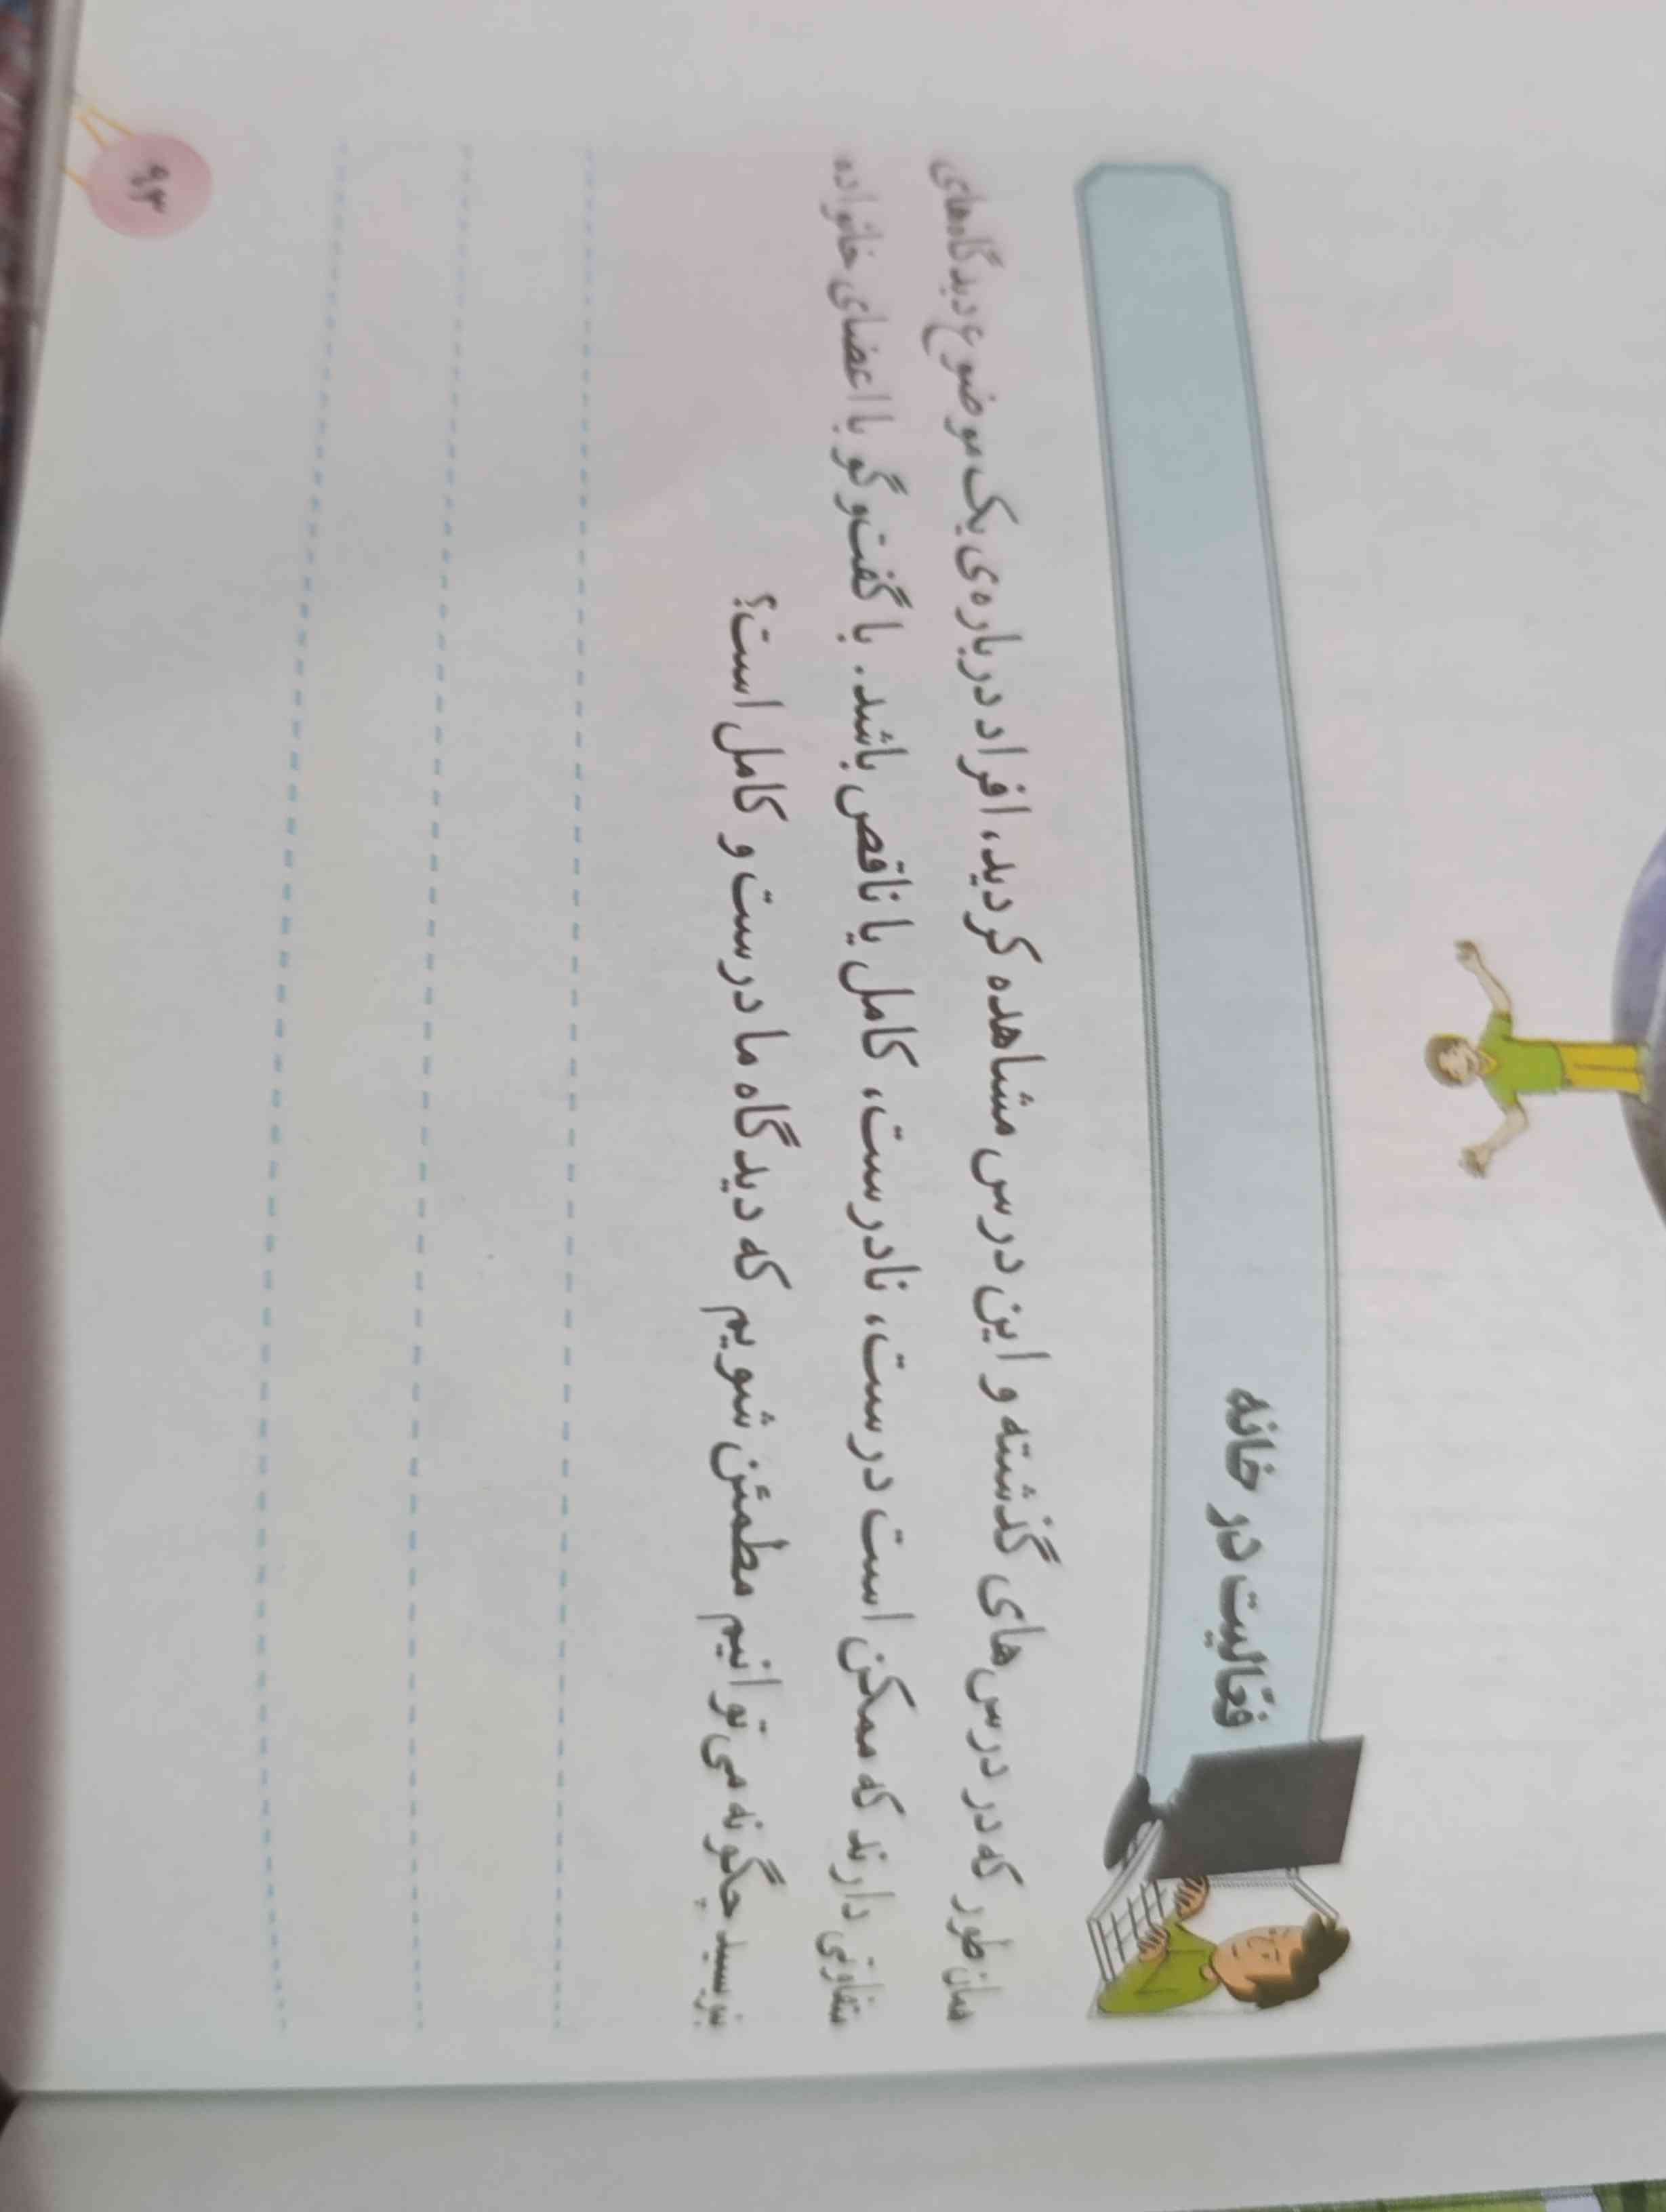 فعّالیت در خانه
همان‌طور که در درس‌های گذشته و این درس مشاهده کردید، افراد درباره‌ی یک موضوع دیدگاه‌های
متفاوتی دارند که ممکن است درست، نادرست، کامل یا ناقص باشد. با گفت‌وگو با اعضای خانواده
بنویسید چگونه می‌توانیم مطمئن شویم که دیدگاه ما درست و کامل است؟
۹۳